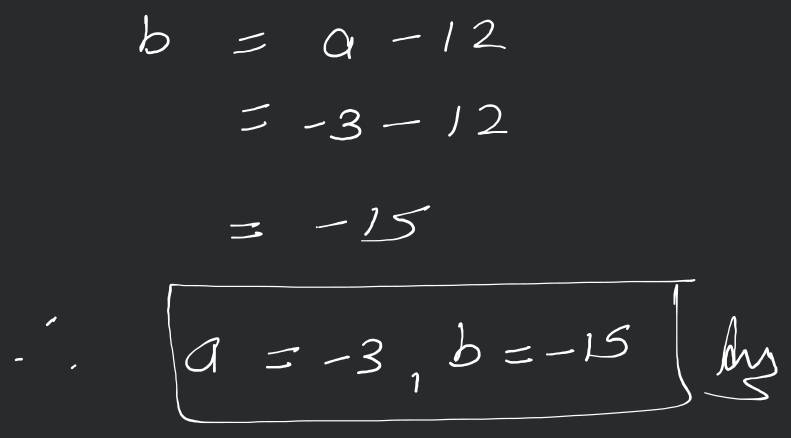 b = a - 12
= -3 - 12
= -15
∴ a = -3, b = -15 Ans